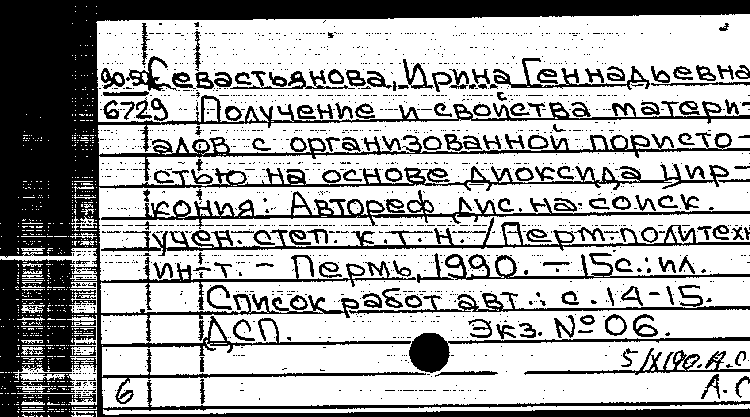 90-50 Севастьянова, Ирина Геннадьевна
6729 Получение и свойства матери-
алов с организованной пористо-
стью на основе диоксида цир-
кония: Автореф дис. на соиск.
учен. степ. к.т.н. / Перм. политехн
ин-т. - Пермь, 1990. - 15с.: ил.
Список работ авт.: с. 14-15.
ДСП. Экз. № 06.
5/X190. А.С
6 А.С